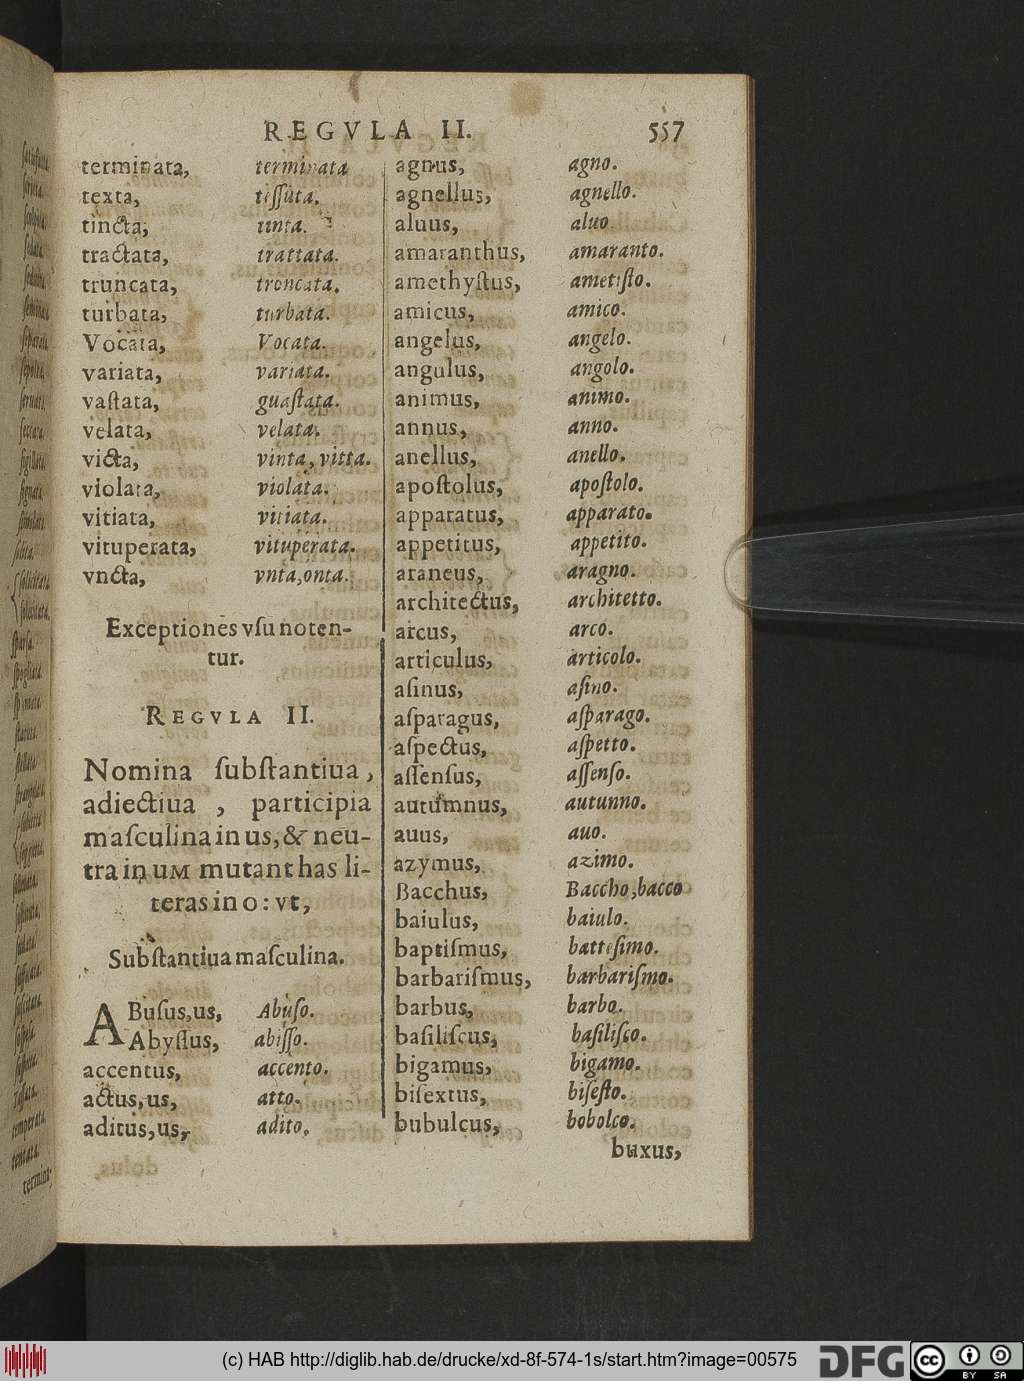 REGVLA II. 557
terminata, terminata
texta, tissuta.
tincta, tinta.
tractata, trattata.
truncata, troncata.
turbata, turbata.
Vocata, Vocata.
variata, variata.
vaſtata, guaſtata.
velata, velata.
victa, vinta, vitta.
violata, violata.
vitiata, vitiata.
vituperata, vituperata.
vncta, vnta,onta.
Exceptiones vſu noten-
tur.
REGVLA II.
Nomina ſubſtantiua,
adiectiua , participia
maſculina in us, & neu-
tra in uM mutant has li-
teras in o: vt,
Subſtantiua maſculina.
ABuſus,us, Abuſo.
Abyſſus, abiſſo.
accentus, accento.
actus,us, atto.
aditus,us, adito.
agnus, agno.
agnellus, agnello.
aluus, aluo
amaranthus, amaranto.
amethyſtus, ametiſto.
amicus, amico.
angelus, angelo.
angulus, angolo.
animus, animo.
annus, anno.
anellus, anello.
apoſtolus, apoſtolo.
apparatus, apparato.
appetitus, appetito.
araneus, aragno.
architectus, architetto.
arcus, arco.
articulus, articolo.
aſinus, aſino.
aſparagus, aſparago.
aſpectus, aſpetto.
aſſenſus, aſſenſo.
autumnus, autunno.
auus, auo.
azymus, azimo.
Bacchus, Baccho,bacco
baiulus, baiulo.
baptiſmus, batteſimo.
barbariſmus, barbariſmo.
barbus, barbo.
baſiliſcus, baſiliſco.
bigamus, bigamo.
biſextus, biſeſto.
bubulcus, bobolco.
buxus,
(c) HAB http://diglib.hab.de/drucke/xd-8f-574-1s/start.htm?image=00575 DFG cc BY SA